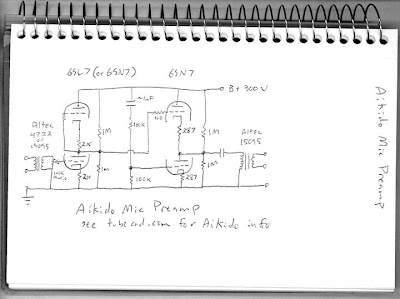 6SL7 (or 6SN7)
6SN7
B+ 300V
Altec
4722
or
15095
2K
1M
100K
287
1M
1M
1M
2K
100K
287
Altec
15095
Aikido Mic Preamp
see tubecad.com for Aikido info
Aikido Mic Preamp